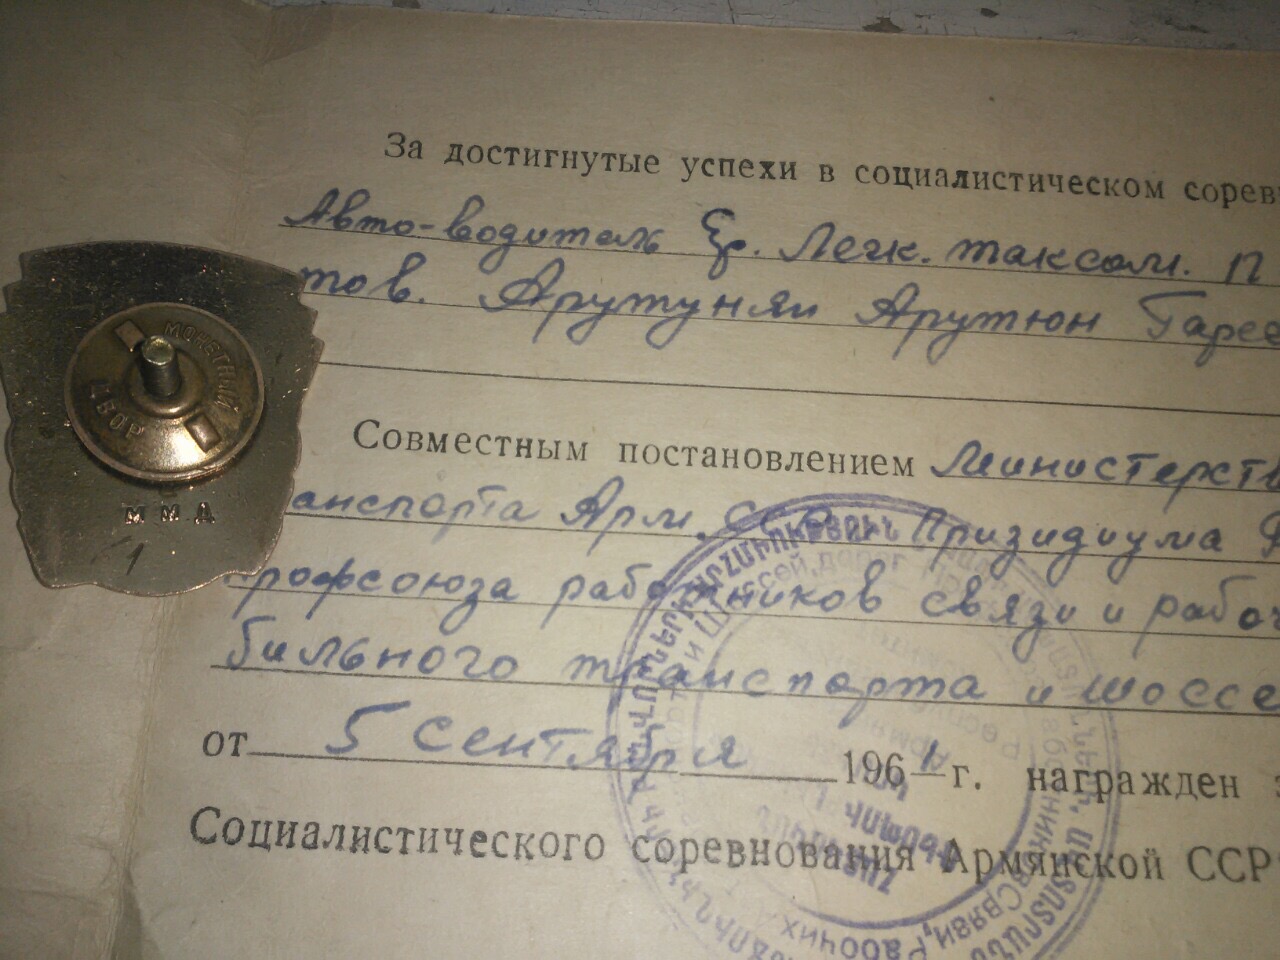 За достигнутые успехи в социалистическом сорев
Авто-водитель Ер. Легк. таксом. П
тов. Арутунян Арутюн Гаре
Совместным постановлением Министерств
анспорта Арм. ССР Призидиума
профсоюза работников связи и рабоч
бильного транспорта и шоссе
от 5 сентября 1961 г. награжден з
Социалистического соревнования Армянской ССР
МОНЕТНЫЙ
ДВОР
ММД